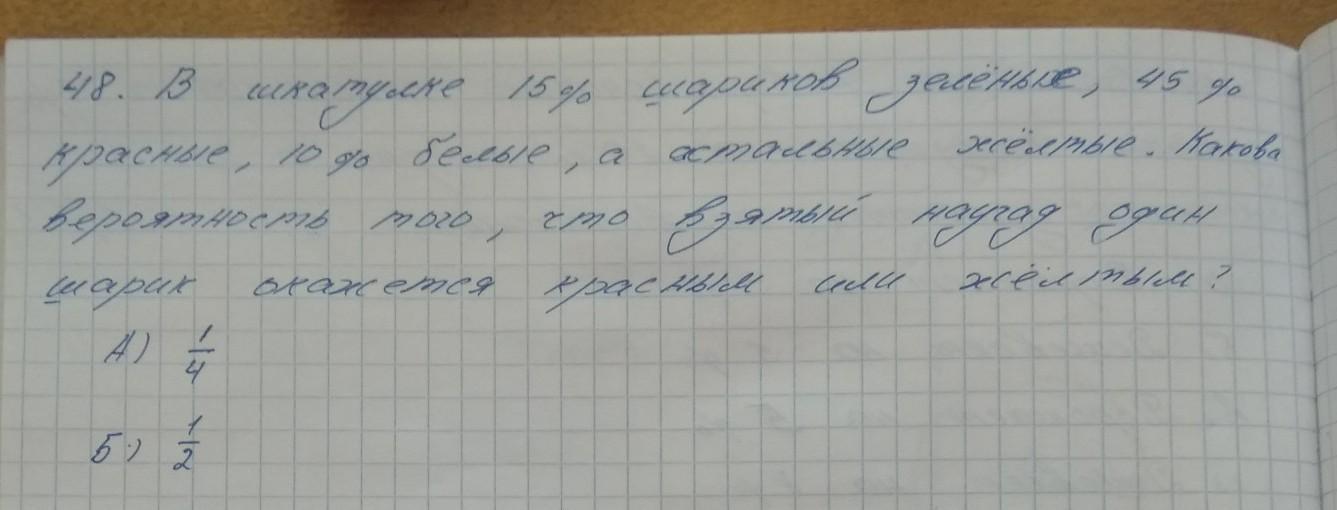 48. В шкатулке 15% шариков зелёные, 45%
красные, 10% белые, а остальные жёлтые. Какова
вероятность того, что взятый наугад один
шарик окажется красным или жёлтым?
А) 1/4
Б) 1/2